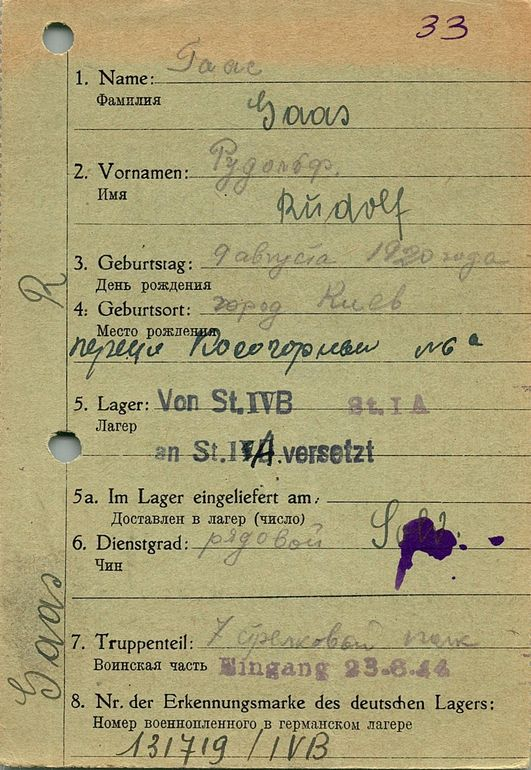 33
Гаас
1. Name:
Фамилия
Gaas
Рудольф.
2. Vornamen:
Имя
Rudolf
3. Geburtstag: 9 августа 1920 года
День рождения
4. Geburtsort: город Киев
Место рождения
Косогорный №6а
5. Lager: Von St. IVB St. I A
Лагер
an St. IVA. versetzt
5a. Im Lager eingeliefert am:
Доставлен в лагер (число)
6. Dienstgrad: рядовой Sold.
Чин
7. Truppenteil: 7 стрелковой полк
Воинская часть Eingang 23.8.44
8. Nr. der Erkennungsmarke des deutschen Lagers:
Номер военнопленного в германском лагере
131719/IVB
R
Gaas